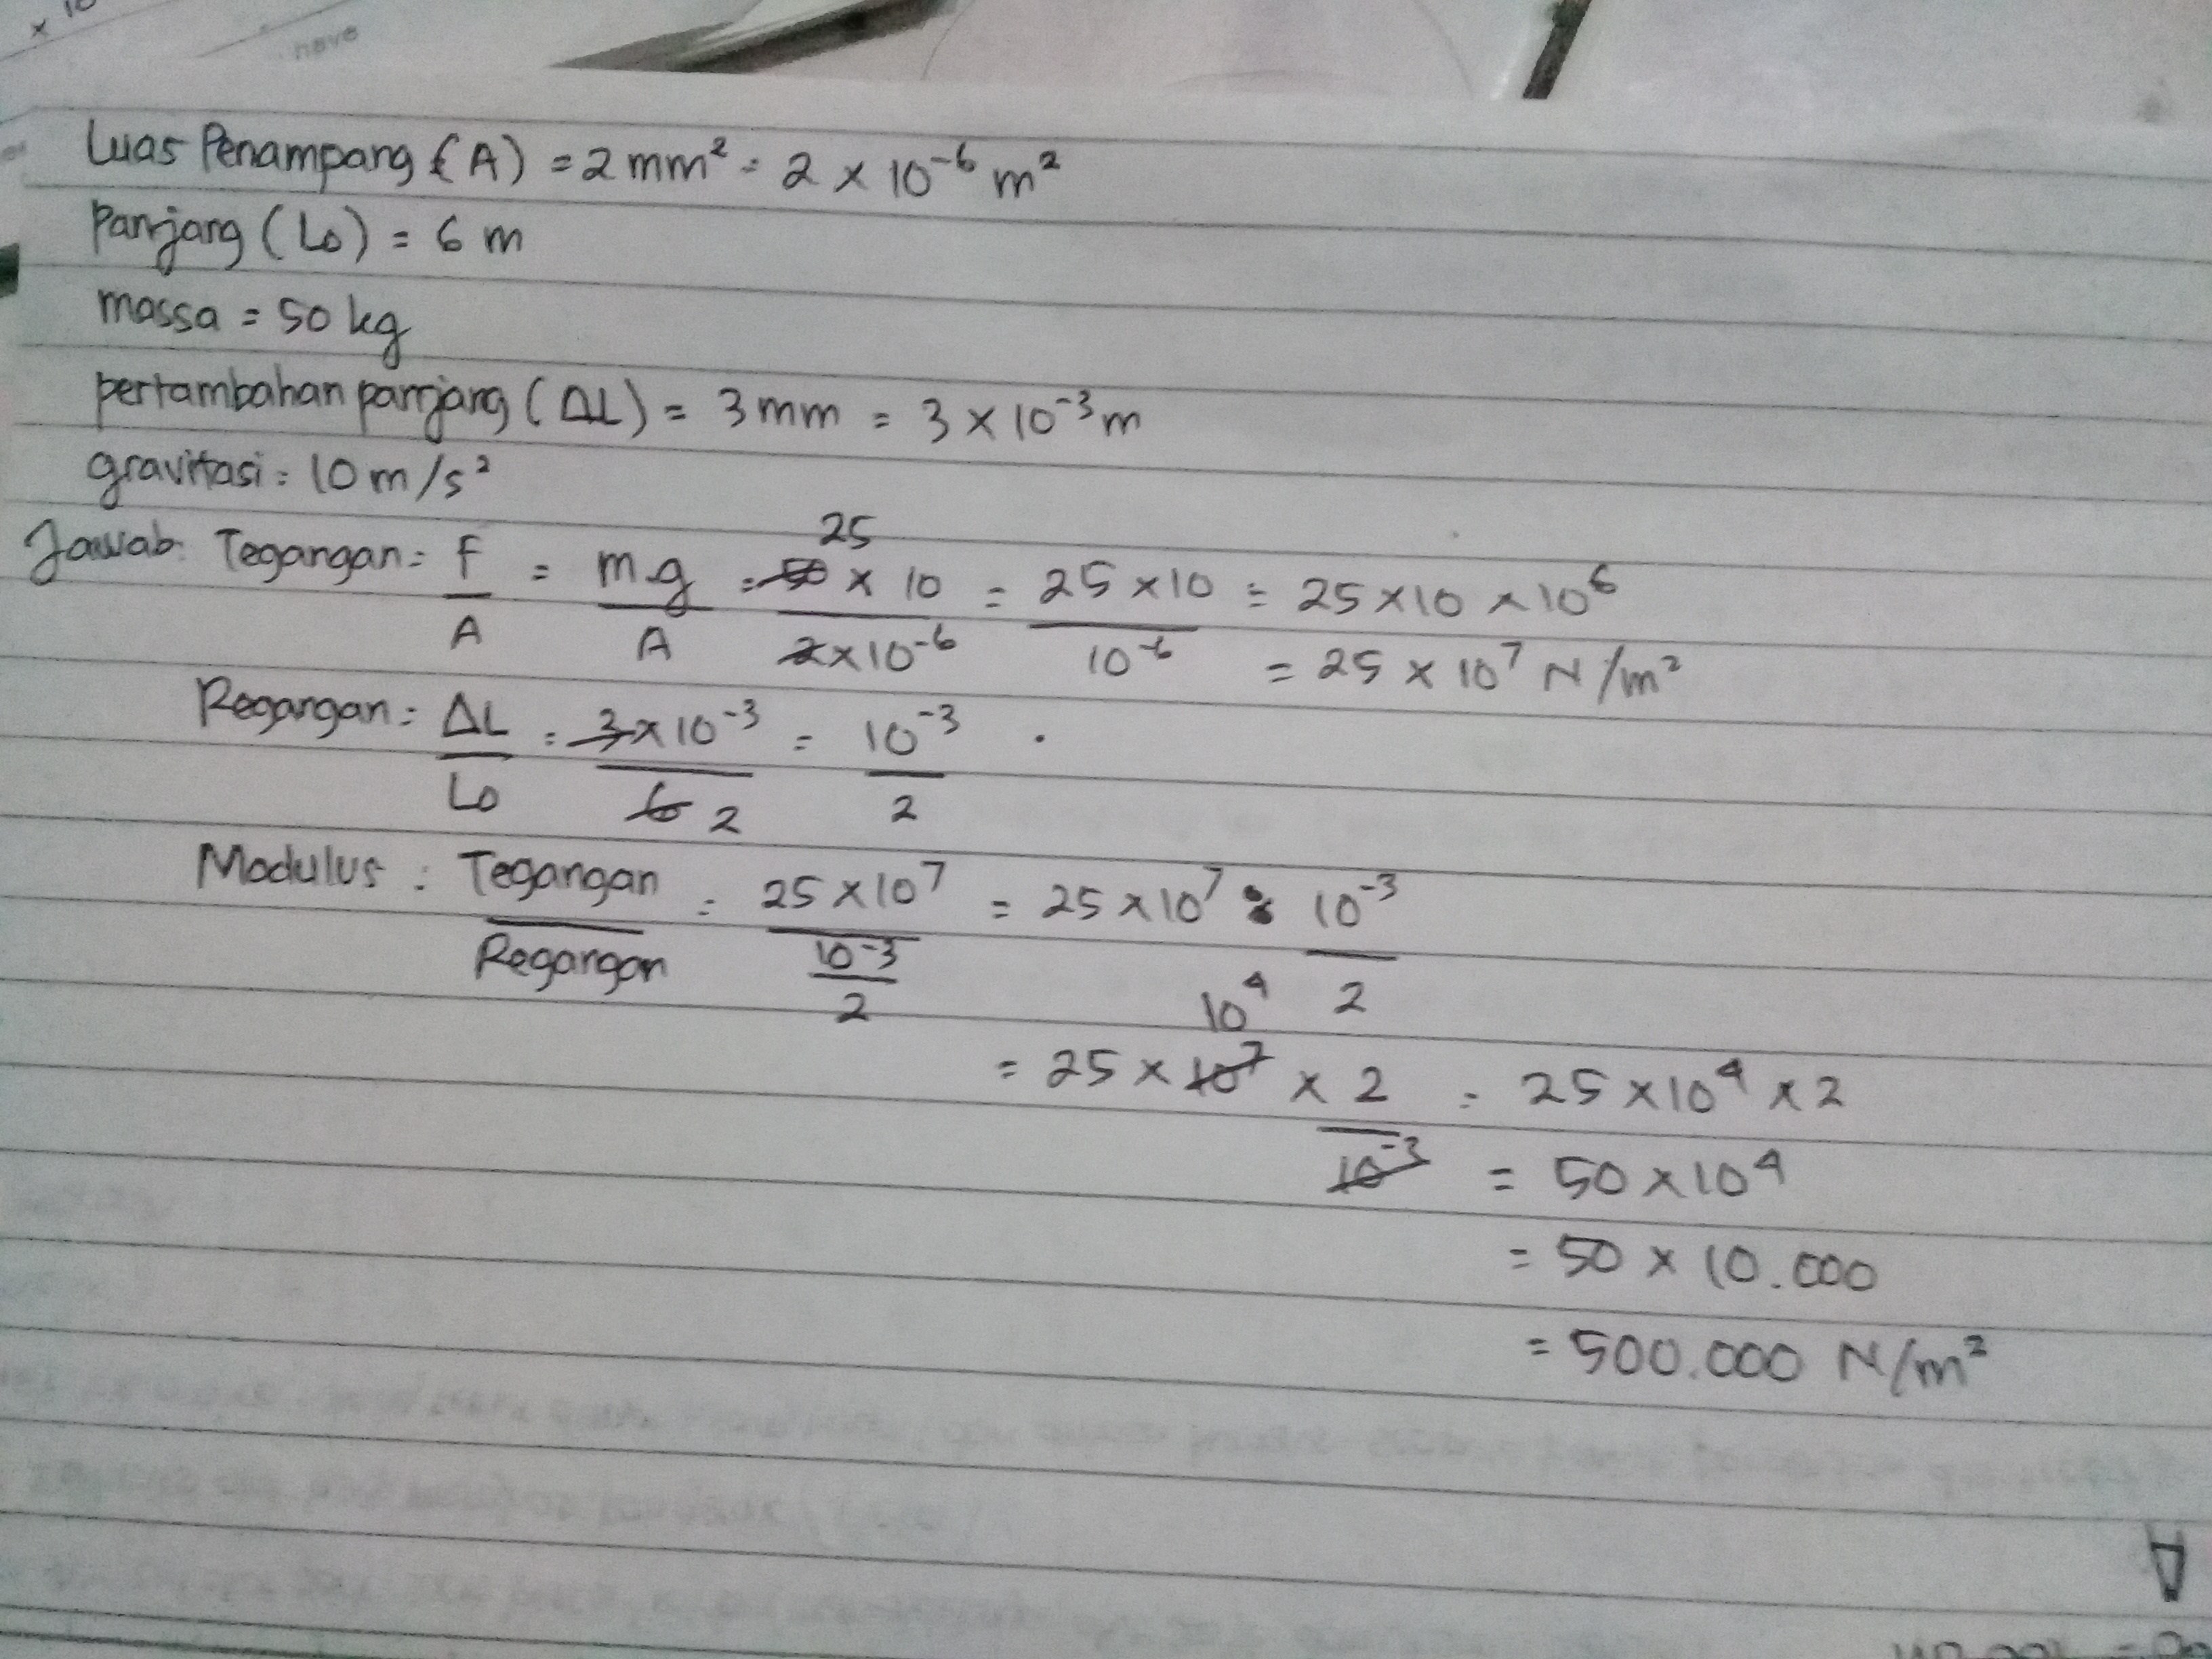 x 10
nave
Luas Penampang (A) = 2 mm² = 2 × 10⁻⁶ m²
Panjang (Lo) = 6 m
massa = 50 kg
pertambahan panjang (ΔL) = 3 mm = 3 × 10⁻³ m
gravitasi = 10 m/s²
25
Jawab: Tegangan = F/A = m.g/A = 50 × 10 / 2 × 10⁻⁶ = 25 × 10 / 10⁻⁶ = 25 × 10 × 10⁶
= 25 × 10⁷ N/m²
Regangan = ΔL/Lo = 3 × 10⁻³ / 6 2 = 10⁻³/2
Modulus = Tegangan/Regangan = 25 × 10⁷ / 10⁻³/2 = 25 × 10⁷ : 10⁻³/2
10⁴
= 25 × 10⁷ × 2/10⁻³ = 25 × 10⁴ × 2
= 50 × 10⁴
= 50 × 10.000
= 500.000 N/m²